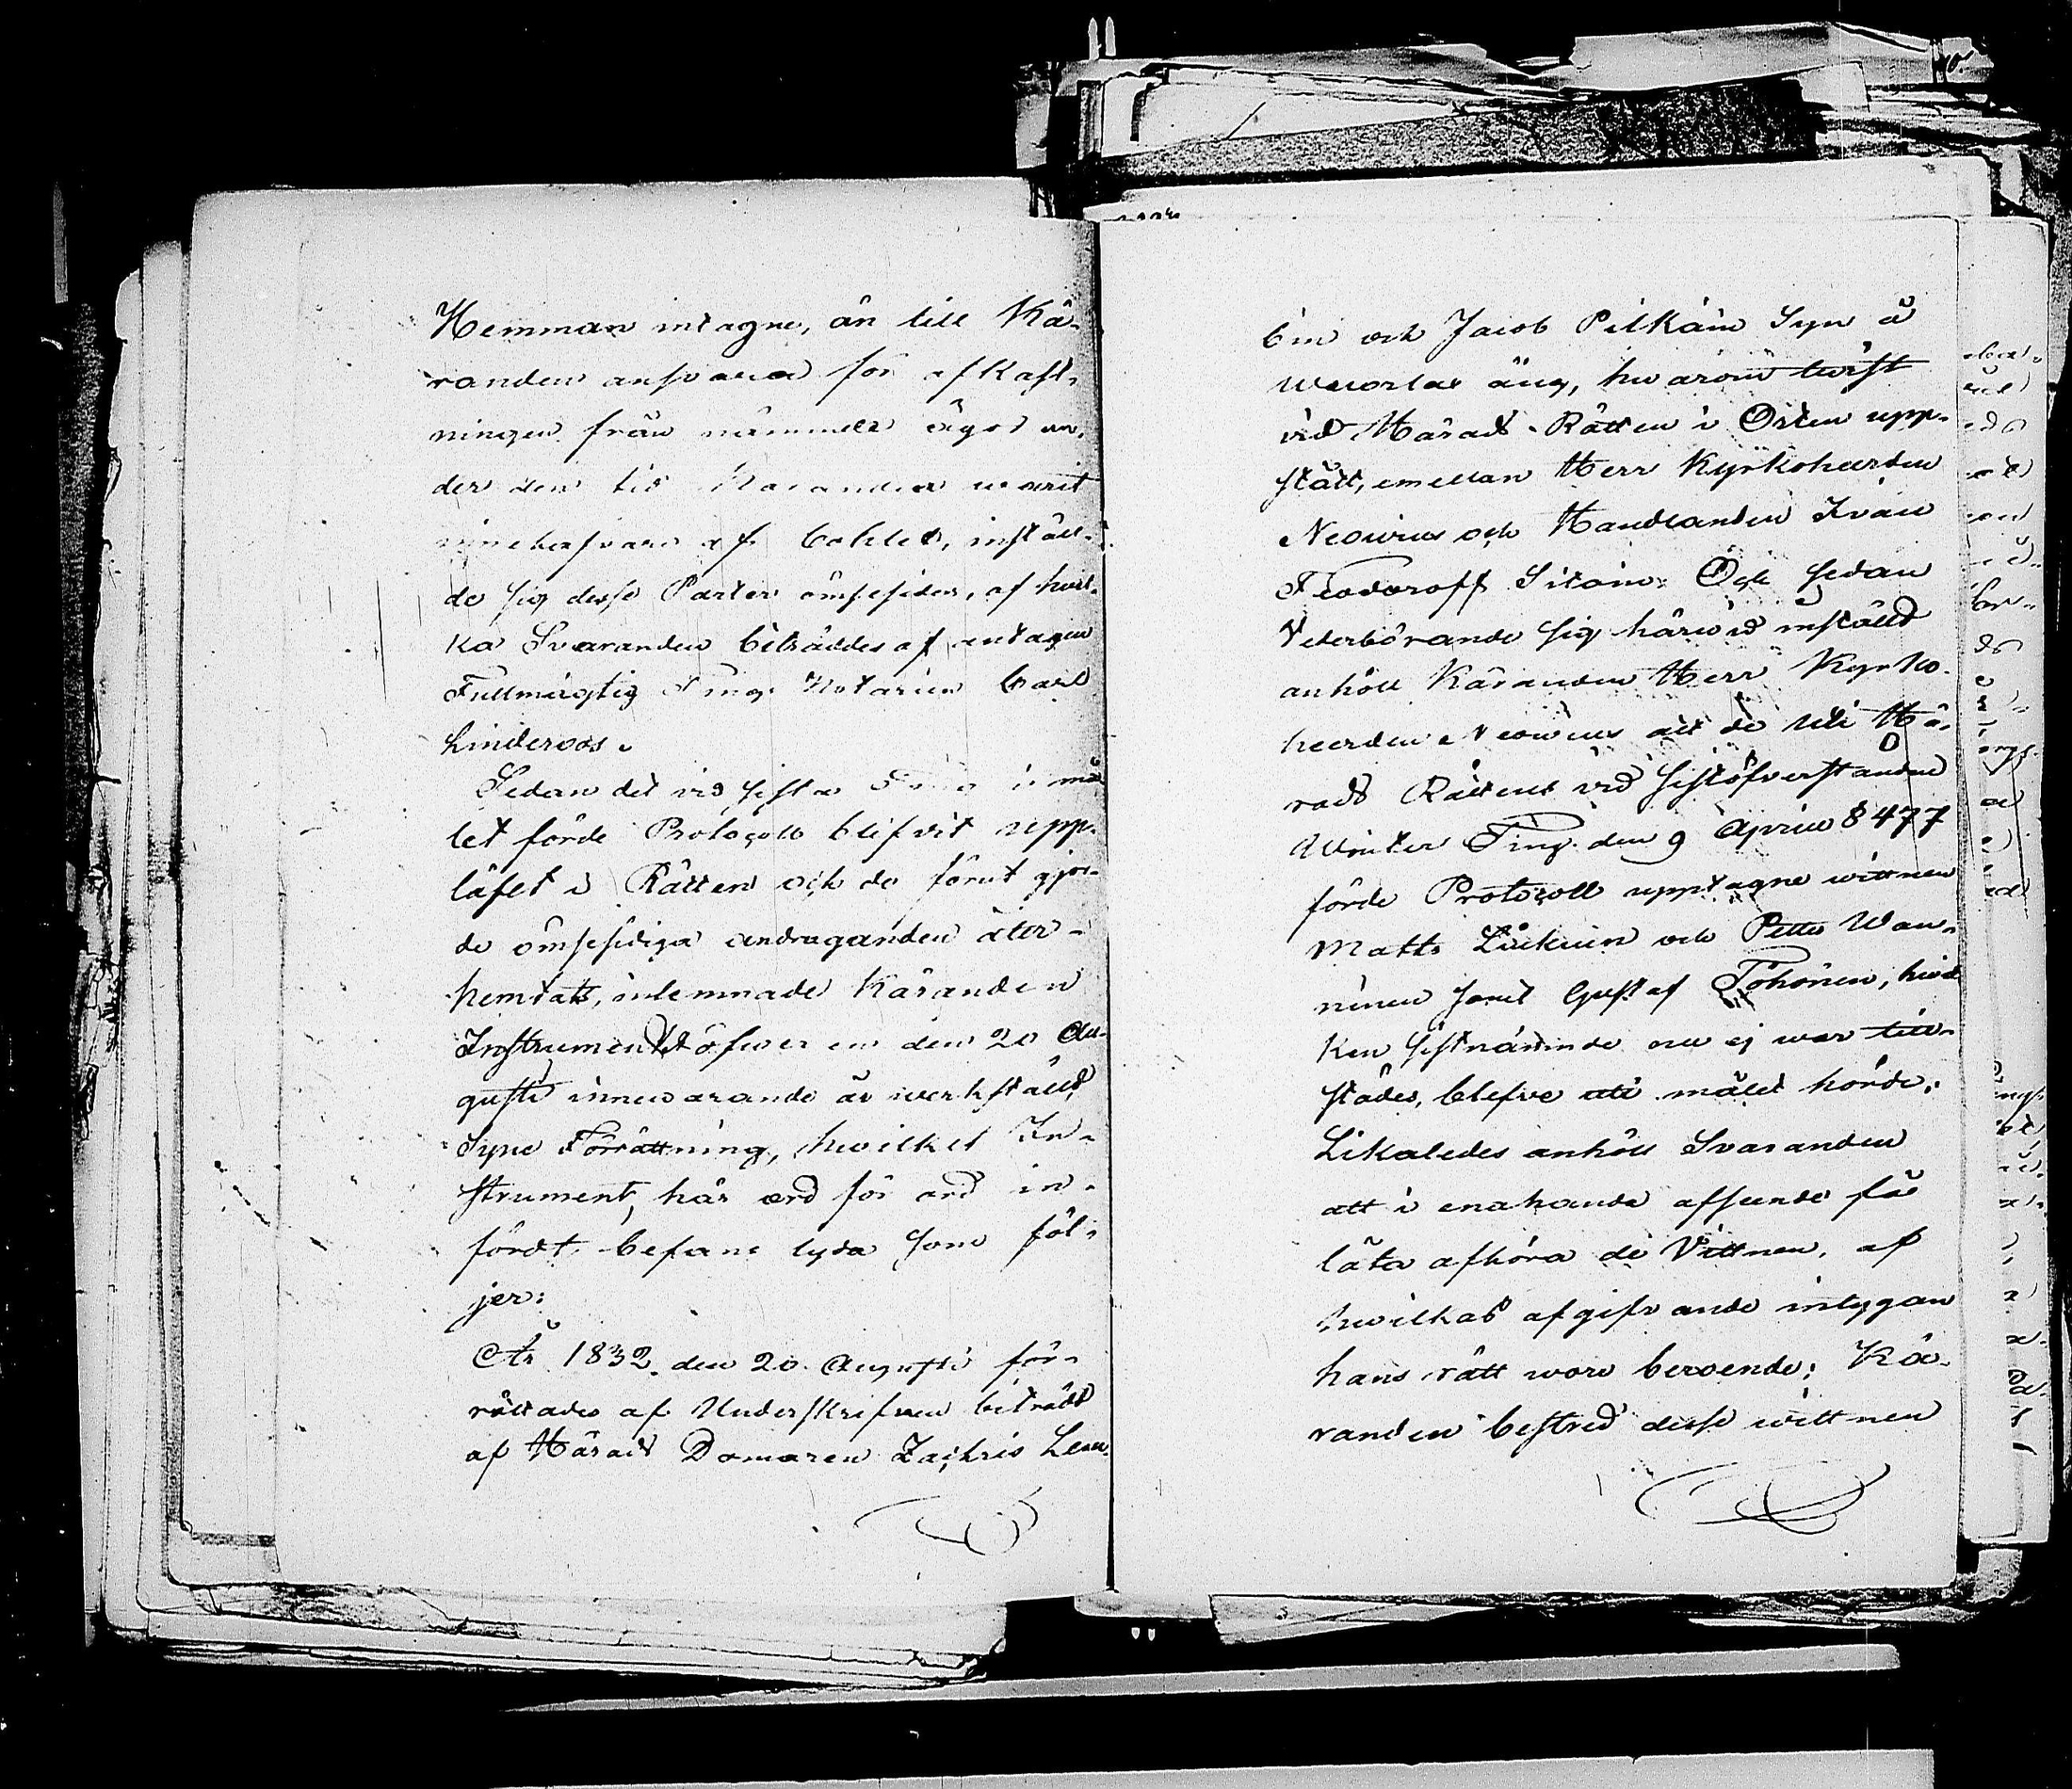 Hemman intagne, än till Kä-
randen ansvara för afkast-
ningen från nämnde ägor un-
der den tid Käranden warit
innehafvare af Bohlet, instäl-
de sig desse Parter ömsesides, af hvil-
ka Svaranden biträddes af antagen
Fullmägtig Tings Notarien Carl
Linderoos.
Sedan det vid sista Ting i må-
let förde Protocoll blifvit upp-
läset i Rätten och de förut gjor-
de ömsesidiga andraganden åter-
hemtats, inlemnade Käranden
Instrumentet öfver en den 20 Au-
gusti innevarande år werkstäld
Syne Förrättning, hwilket In-
strument, här ord för ord in-
fördt, befans lyda som föl-
jer:
År 1832 den 20 Augusti för-
rättades af Underskrifven biträdt
af Härads Domaren Zachris Leu-
bin och Jacob Pitkäin Syn å
äng, hwarom twist
vid Härads Rätten i Orten upp-
stått, emellan Herr Kyrkoherden
Neovius och Handlanden Ivan
Feodoroff Sitoin. Och sedan
Vederbörande sig härwid instäld
anhöll Käranden Herr Kyrko-
heerden Neovius att de uti Hä-
rads Rättens vid sistöfverståndne
Winter Ting den 9 Aprill § 477
förde Protocoll upptagne wittnen
Matts Liukuin och Petter Wan-
ninen samt Gustaf Töhönen, hwil-
ken sistnämnde nu ej war till-
städes, blefve uti målet hörde;
Likaledes anhöll Svaranden
att i enahanda afseende få
låta afhöra de Vittnen, af
hwilkas afgifvande intygan
hans rätt wore beroende; Kä-
randen bestred desse wittnen